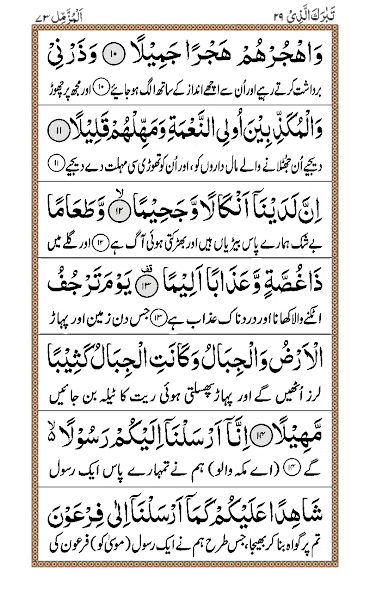 تَبٰرَكَ الَّذِیْ ٢٩ اَلْمُزَّمِّل ٧٣
وَاهْجُرْهُمْ هَجْرًا جَمِیْلًا ۝١٠ وَذَرْنِیْ
برداشت کرتے رہیے اور اُن سے اچھے انداز کے ساتھ الگ ہو جائیے ۝١٠ اور مجھ پر چھوڑ
وَالْمُكَذِّبِیْنَ اُولِی النَّعْمَةِ وَمَهِّلْهُمْ قَلِیْلًا ۝١١
دیجیے اُن جھٹلانے والے مال داروں کو، اور اُن کو تھوڑی سی مہلت دے دیجیے ۝١١
اِنَّ لَدَیْنَاۤ اَنْكَالًا وَّجَحِیْمًا ۝١٢ۙ وَّطَعَامًا
بے شک ہمارے پاس بیڑیاں ہیں اور بھڑکتی ہوئی آگ ہے ۝١٢ اور گلے میں
ذَا غُصَّةٍ وَّعَذَابًا اَلِیْمًا ۝١٣ۗ یَوْمَ تَرْجُفُ
اٹکنے والا کھانا اور دردناک عذاب ہے ۝١٣ جس دن زمین اور پہاڑ
الْاَرْضُ وَالْجِبَالُ وَكَانَتِ الْجِبَالُ كَثِیْبًا
لرز اُٹھیں گے اور پہاڑ پھسلتی ہوئی ریت کا ٹیلہ بن جائیں
مَّهِیْلًا ۝١٤ اِنَّاۤ اَرْسَلْنَاۤ اِلَیْكُمْ رَسُوْلًا ۙ۬
گے ۝١٤ (اے مکہ والو) ہم نے تمہارے پاس ایک رسول
شَاهِدًا عَلَیْكُمْ كَمَاۤ اَرْسَلْنَاۤ اِلٰی فِرْعَوْنَ
تم پر گواہ بنا کر بھیجا، جس طرح ہم نے ایک رسول (موسیٰ کو) فرعون کی